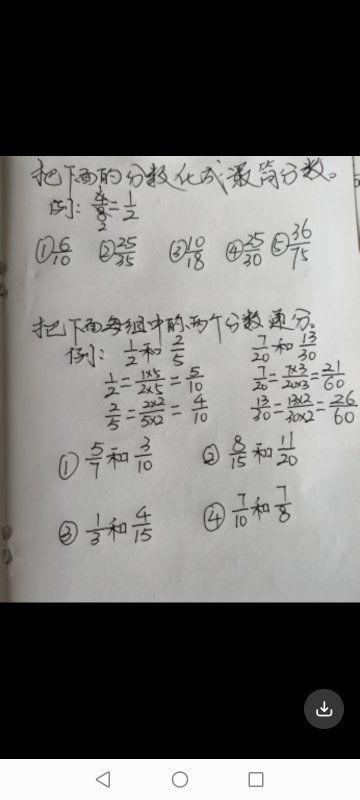 把下面的分数化成最简分数。
例：4/8=1/2 1 2
①6/10 ②25/35 ③10/18 ④25/30 ⑤36/75
把下面每组中的两个分数通分。
例：1/2和2/5 7/20和13/30
1/2=1×5/2×5=5/10 7/20=7×3/20×3=21/60
2/5=2×2/5×2=4/10 13/30=13×2/30×2=26/60
①5/7和3/10 ②8/15和11/20
③1/3和4/15 ④7/10和7/8